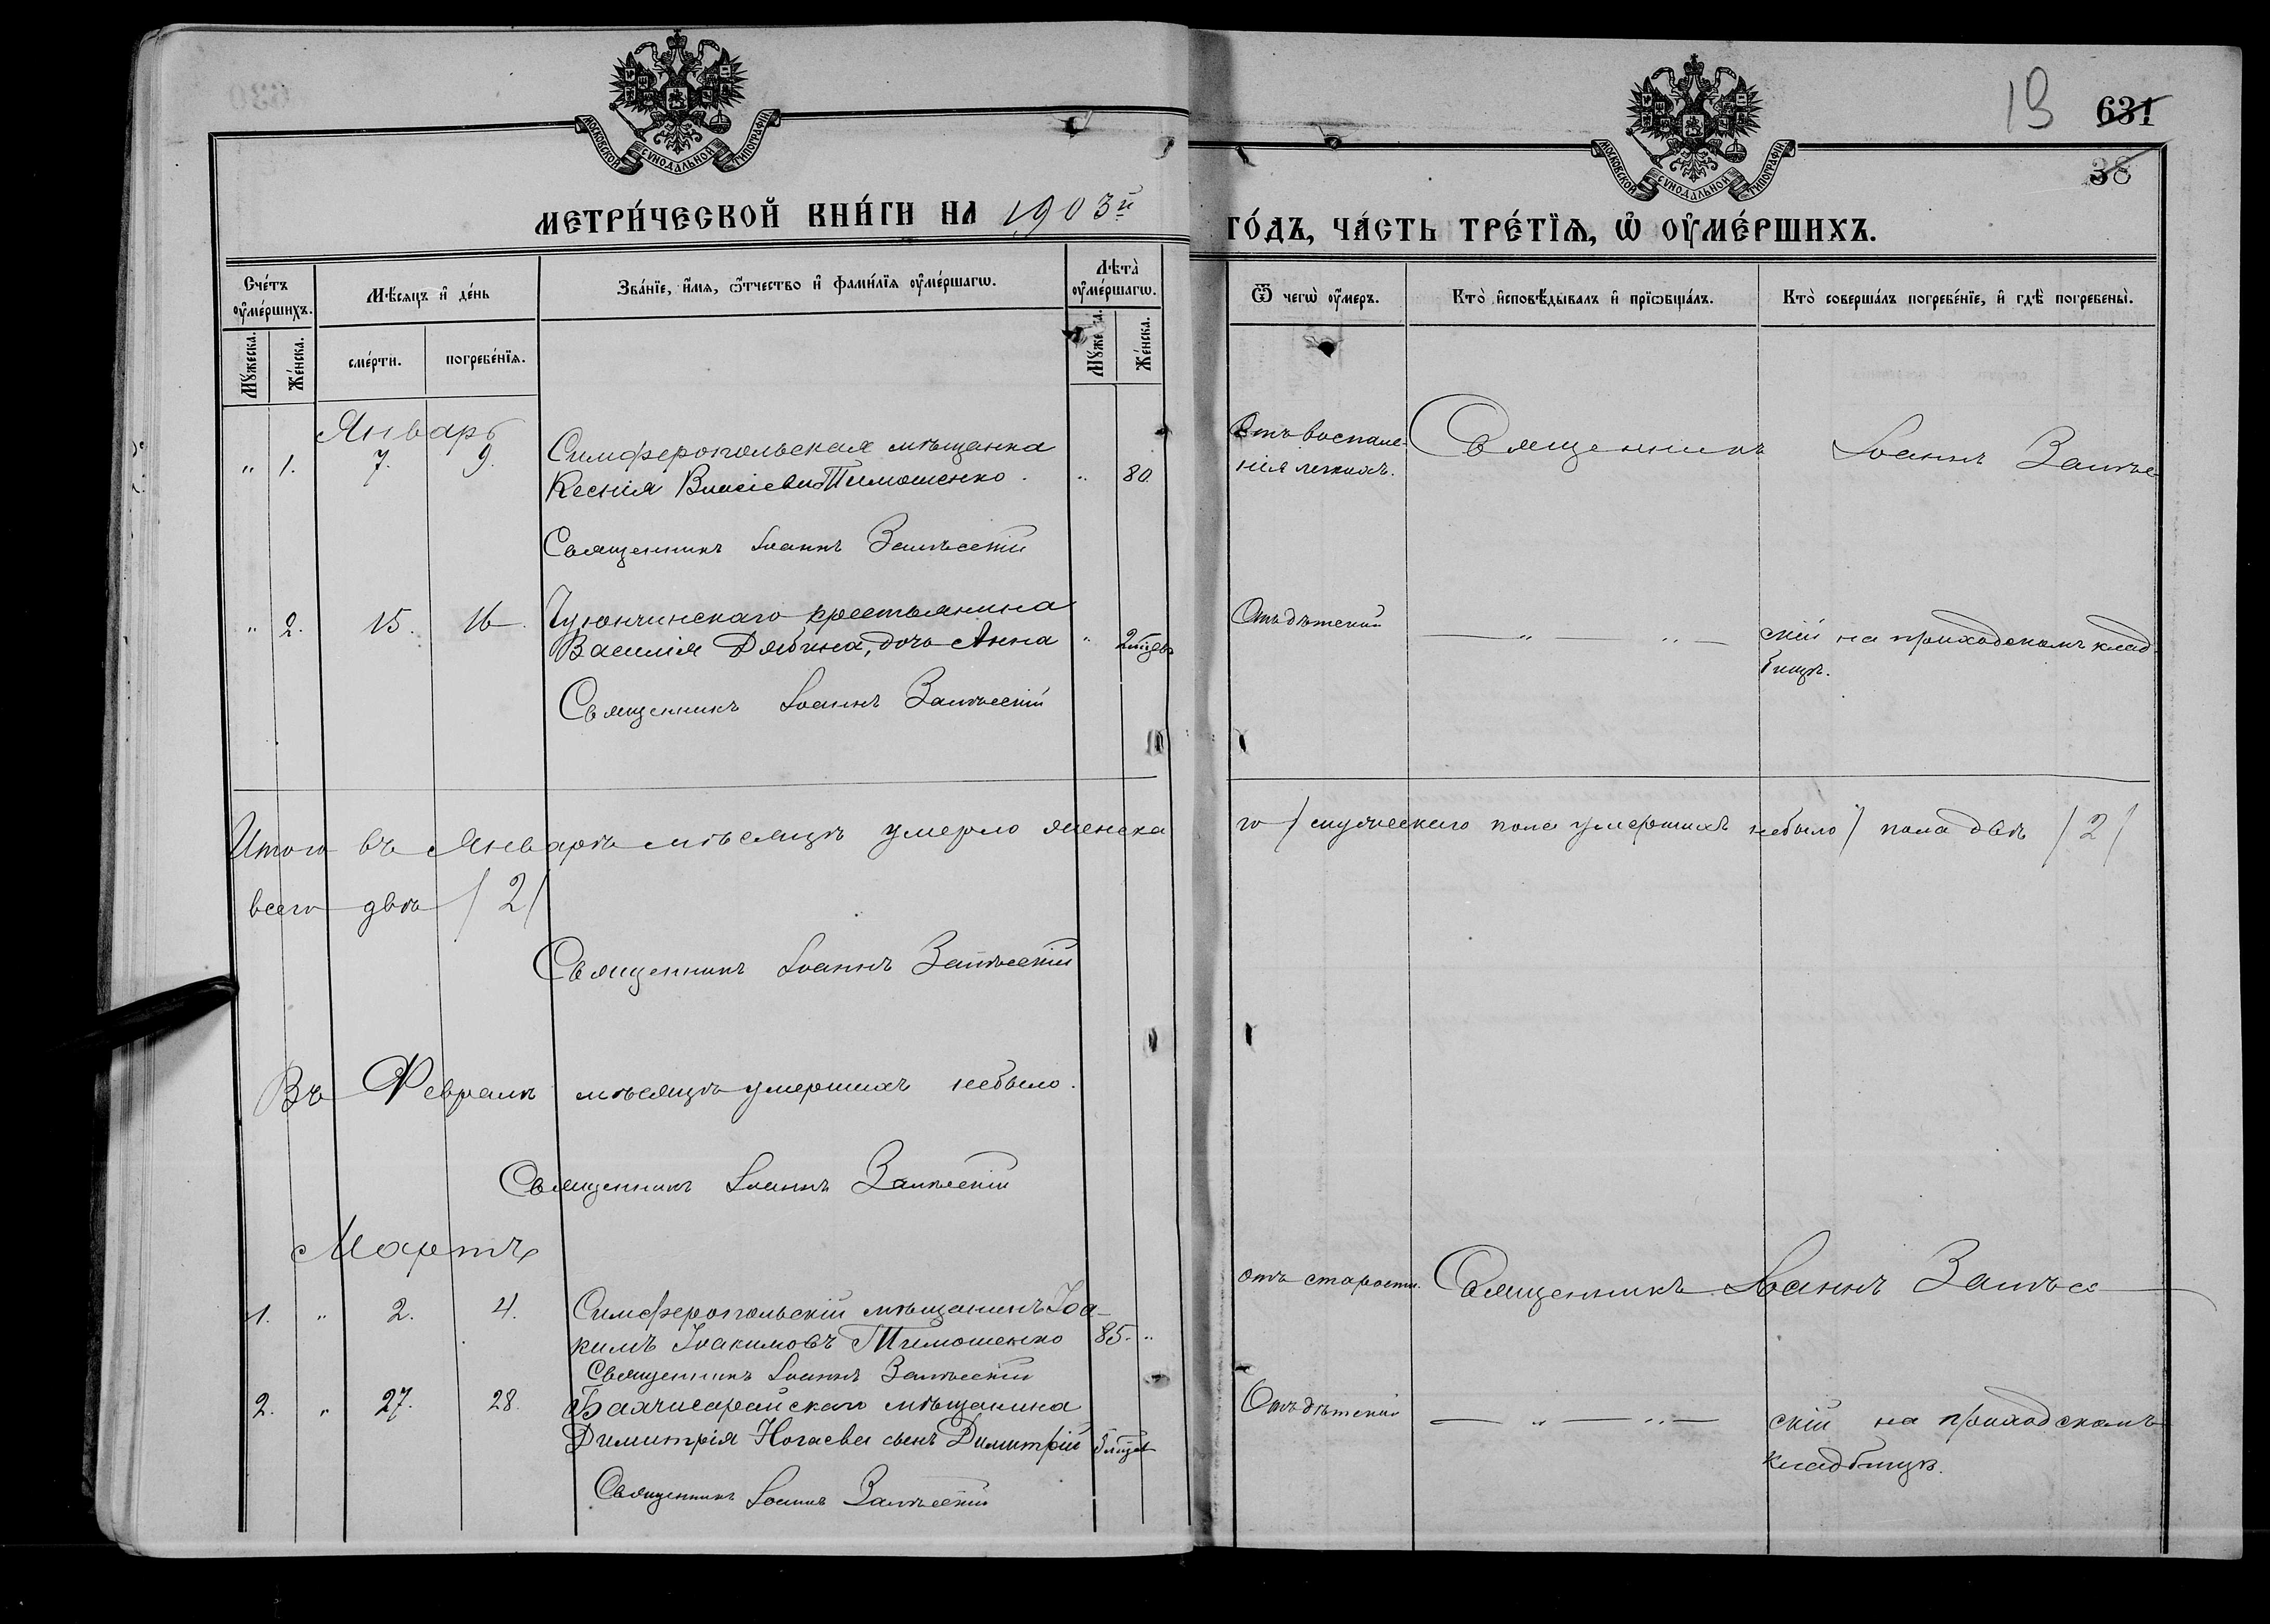 19 631
38
МОСКОВСКОЙ СѴНОДАЛЬНОЙ ТИПОГРАФІИ
МОСКОВСКОЙ СѴНОДАЛЬНОЙ ТИПОГРАФІИ
МЕТРИ́ЧЕСКОЙ КНИ́ГИ НА 1903й
ГО́ДЪ, ЧА́СТЬ ТРЕ́ТІѦ, Ѡ҆ ОУ҆МЕ́РШИХЪ.
Сче́тъ оу҆ме́ршихъ.
Мѣ́сяцъ и҆ де́нь
Зва́нїе, и҆́мя, ѻ҆́тчество и҆ фами́лїя оу҆ме́ршагѡ.
Лѣта̀ оу҆ме́ршагѡ.
Ѿ чегѡ̀ оу҆́меръ.
Кто̀ и҆сповѣ́дывалъ и҆ прїѡбща́лъ.
Кто̀ соверша́лъ погребе́нїе, и҆ гдѣ̀ погребены̀.
Мꙋ́жеска. Же́нска.
сме́рти. погребе́нїя.
Мꙋ́жеска. Же́нска.
Январь
" 1. 7. 9. Симферопольская мѣщанка
Ксенія Тимошенко. " 80.
Отъ воспале-
нія легкихъ.
Священникъ Іоаннъ Залѣс-
Священникъ Іоаннъ Залѣсскій
" 2. 15. 16. крестьянина
Василія Дябина, дочь Анна " 2 мѣцевъ
Отъ дѣтской
— " — " — скій на приходскомъ клад-
бищѣ.
Священникъ Іоаннъ Залѣсскій
Итого въ Январѣ мѣсяцѣ умерло женска
го / мужескаго пола умершихъ небыло / пола двѣ /2/
всего двѣ /2/
Священникъ Іоаннъ Залѣсскій
Въ Февралѣ мѣсяцѣ умершихъ небыло.
Священникъ Іоаннъ Залѣсскій
Мартъ
1. " 2. 4. Симферопольскій мѣщанинъ Іоа-
кимъ Іоакимовъ Тимошенко 85. "
отъ старости. Священникъ Іоаннъ Залѣс-
Священникъ Іоаннъ Залѣсскій
2. " 27. 28. Бахчисарайскаго мѣщанина
Димитрія Ногаева сынъ Димитрій мѣцев
Отъ дѣтской — " — " — скій на приходскомъ
кладбищѣ.
Священникъ Іоаннъ Залѣсскій